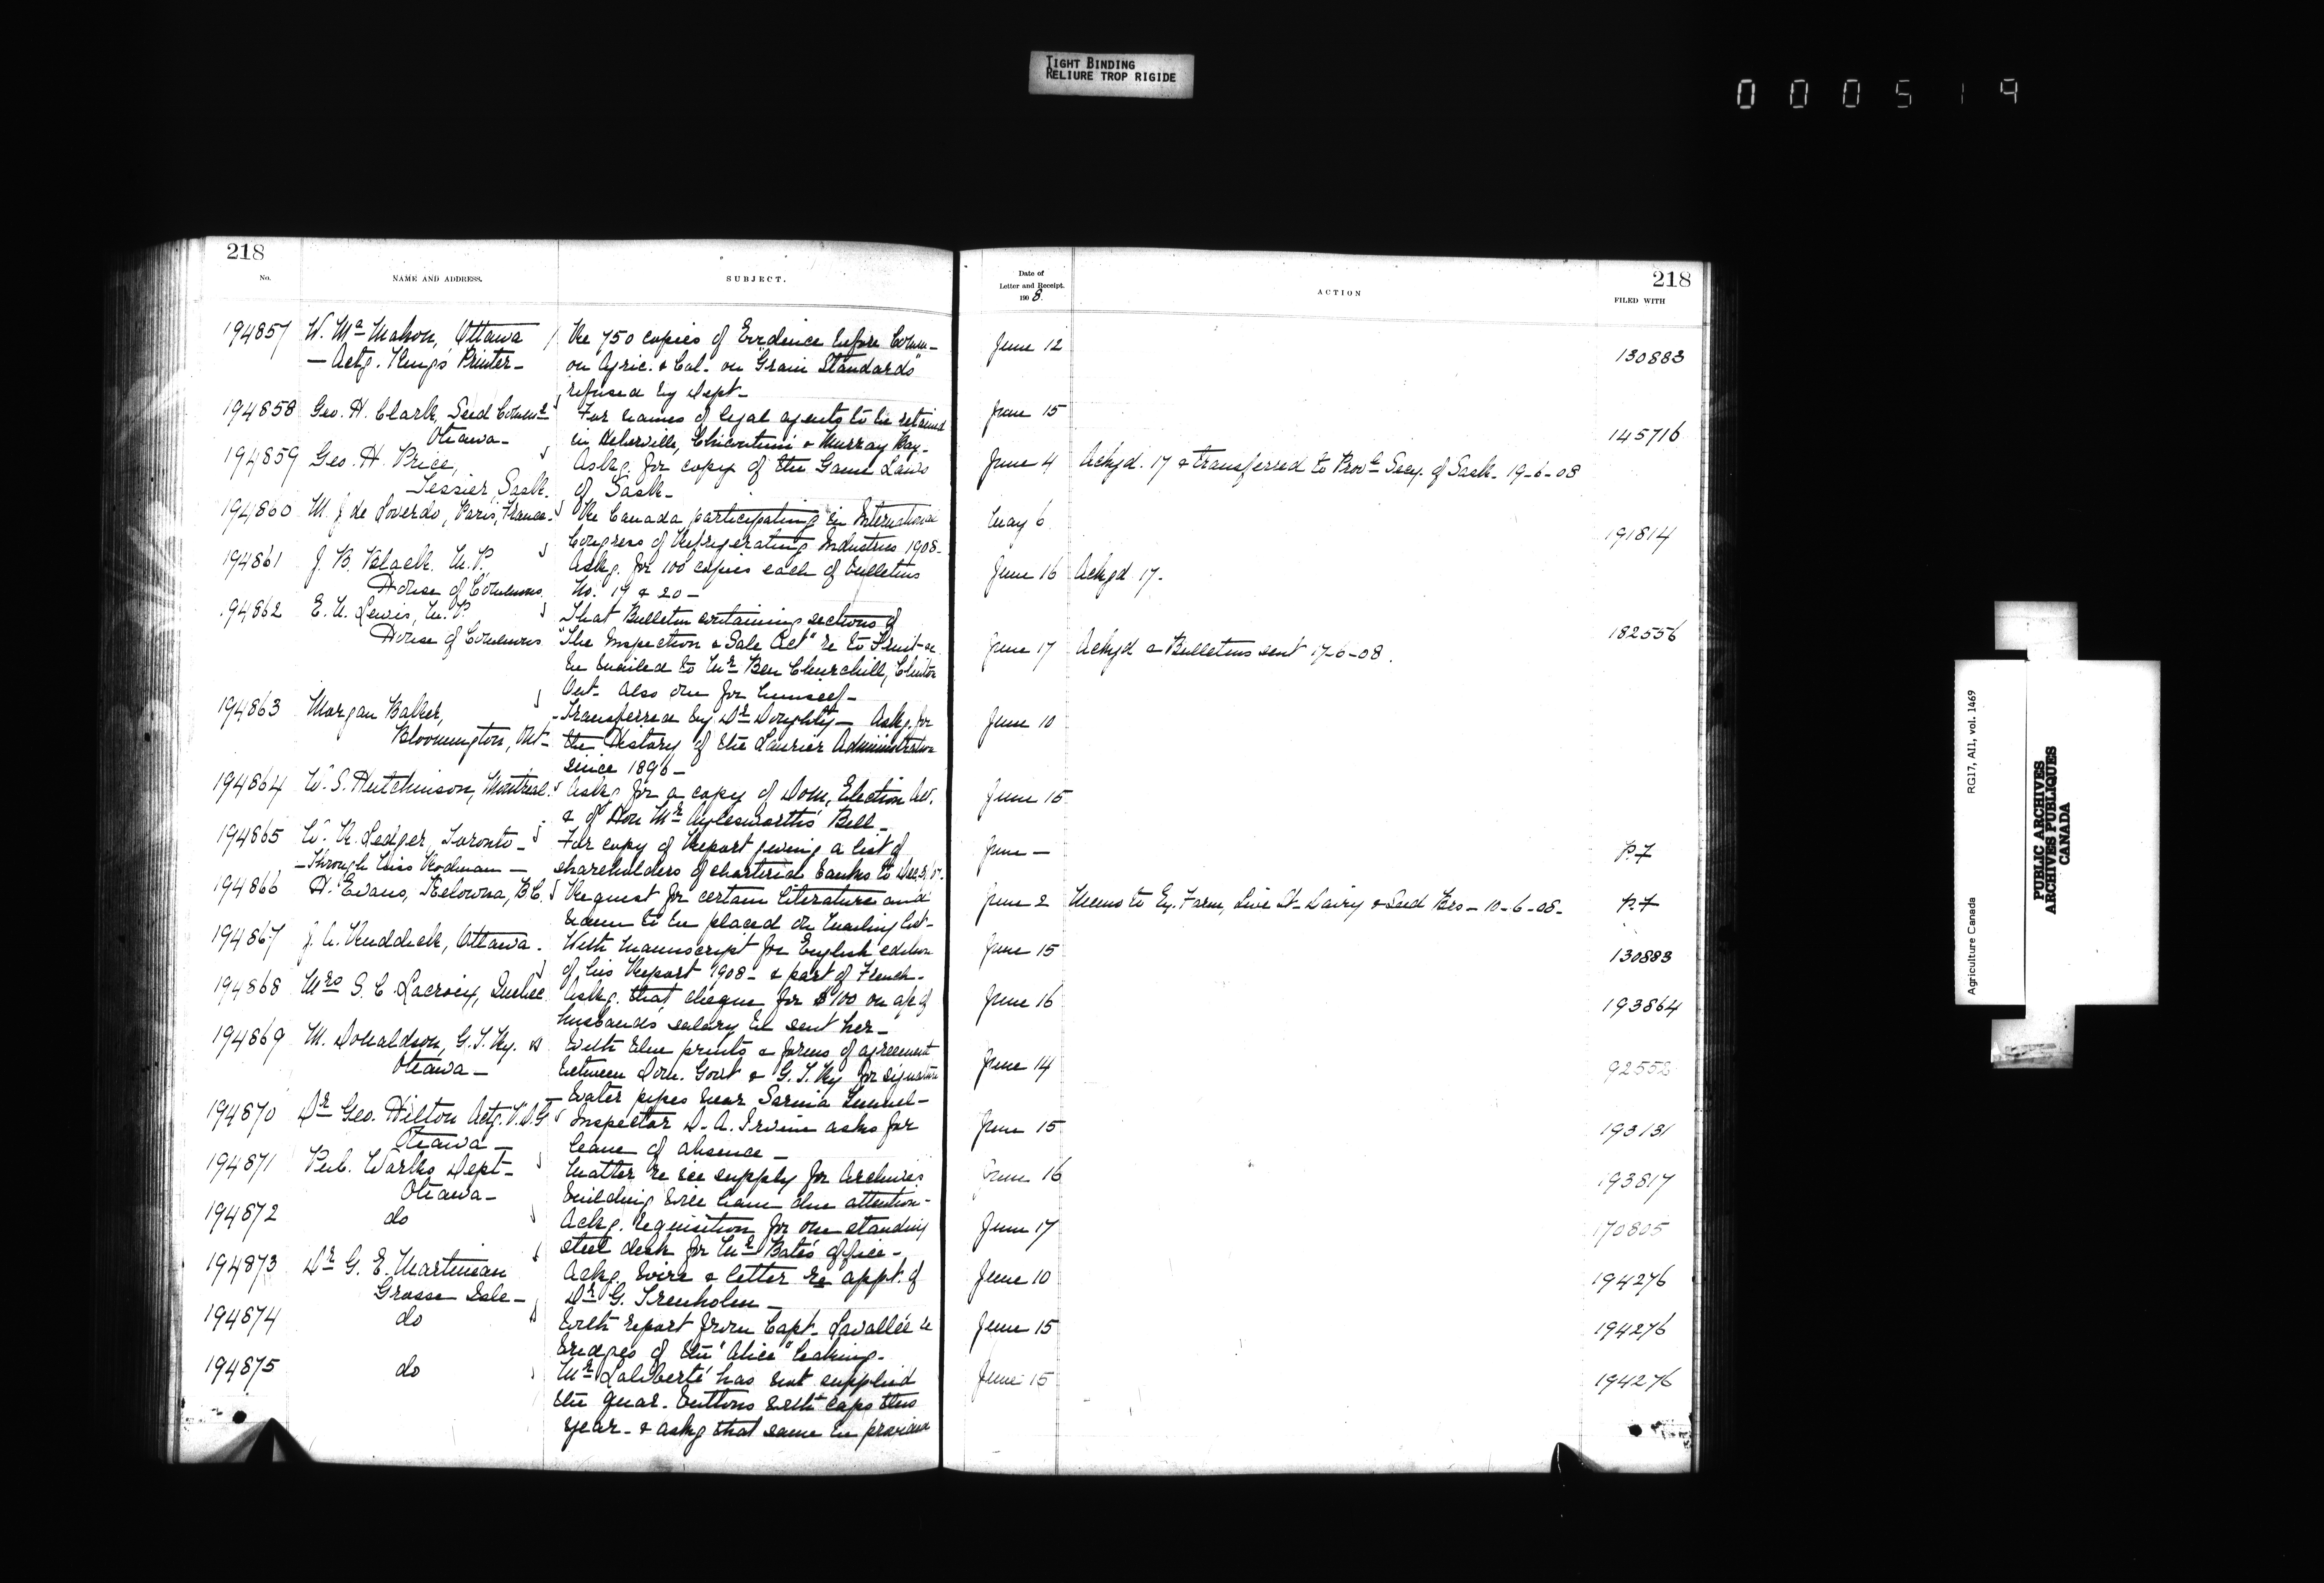 TIGHT BINDING
RELIURE TROP RIGIDE
000519
218
No.
NAME AND ADDRESS.
SUBJECT.
194857 W. McMahon, Ottawa Re 750 copies of Evidence before Comm-
— Actg. King's Printer — on Agric. & Col. on "Grain Standards"
refused by Dept-
194858 Geo. H. Clark, Seed Commr For names of legal agents to be retained
Ottawa- in Iberville, Chicoutimi & Murray Bay-
194859 Geo. H. Price, Askg. for copy of the Game Laws
Tessier, Sask. of Sask-
194860 M. J. de Loverdo, Paris, France- Re Canada participating in International
Congress of Refrigerating Industries 1908-
194861 J. B. Black M.P. Askg. for 100 copies each of Bulletins
House of Commons No. 19 & 20-
.94862 E. N. Lewis, M.P. That Bulletin containing sections of
House of Commons "The Inspection & Sale Act" re to Fruit
be mailed to Mr Ben Churchill, Clinton
Ont. Also one for himself-
194863 Morgan Baker, Transferred by Dr Doughty- Askg. for
Bloomington, Ont- the History of the Laurier Administration
since 1896-
194864 W. S. Hutchinson, Montreal. Askg for a copy of Dom. Election Act.
& of Hon Mr Aylesworth's Bill-
194865 W. R. Ledger, Toronto- For copy of Report giving a list of
-Through Miss Rodman- shareholders of chartered banks to Dec.
194866 H. Evans, Kelowna, B.C. Request for certain literature and
name to be placed on mailing list-
194867 J. A. Ruddick, Ottawa. With manuscript for English edition
of his Report 1908- & part of French-
194868 Mrs S. C. Lacroix, Quebec Askg. that cheque for $100 on a/c of
husband's salary be sent her-
194869 M. Donaldson, G.T. Ry. With blue prints & forms of agreement
Ottawa- between Dom. Govt & G.T. Ry for signature
water pipes near Sarnia Tunnel-
194870 Dr Geo. Hilton Actg. V.D.G Inspector D. A. Irvine asks for
Ottawa- leave of absence-
194871 Pub. Works Dept- Matter re ice supply for Archives
Ottawa- building will have due attention-
194872 do Ackg. requisition for one standing
steel desk for Mr Bate's office-
194873 Dr G. E. Martineau Ackg. wire & letter re appt. of
Grosse Isle- Dr G. Trenholm-
194874 do With report from Capt. Lavallée re
bridges of the "Alice" leaking-
194875 do Mr Laliberté has not supplied
the quar. buttons with caps this
year- & askg that same be provided
218
Date of
Letter and Receipt.
1908.
ACTION
FILED WITH
June 12 130883
June 15 145716
June 4 Ackgd. 17 & transferred to Provl Secy. of Sask- 19-6-08
May 6 191814
June 16 Ackgd 17-
June 17 Ackgd & Bulletins sent 17-6-08. 182556
June 10
June 15
June — P.7
June 2 Memo to Ex. Farm, Live St- Dairy & Seed Brs- 10-6-08- P.7
June 15 130883
June 16 193864
June 14 92552
June 15 193131
June 16 193817
June 17 170805
June 10 194276
June 15 194276
June 15 194276
Agriculture Canada RG17, AII, vol. 1469
PUBLIC ARCHIVES
ARCHIVES PUBLIQUES
CANADA